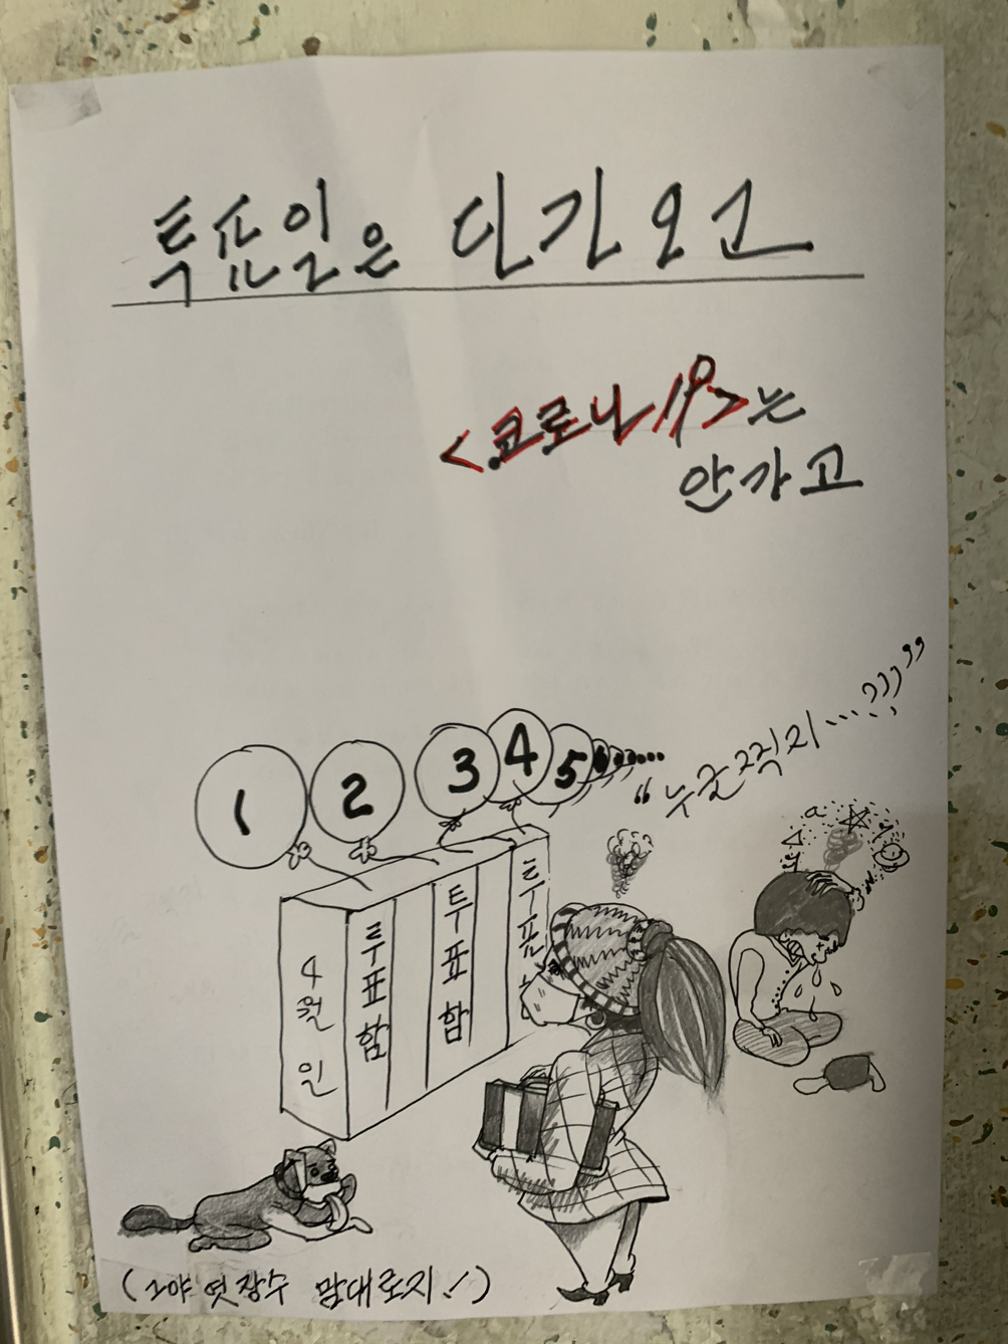 투표일은 다가오고
<코로나19>는
안가고
"누굴 찍지...????"
1 2 3 4 5
4월 일
투표함
투표함
투표
(그야 엿장수 맘대로지!)